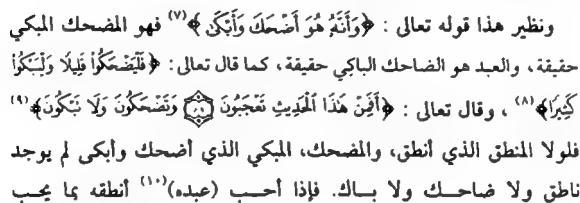 ونظير هذا قوله تعالى : ﴿وَأَنَّهُ هُوَ أَضْحَكَ وَأَبْكَىٰ﴾(٧) فهو المضحك المبكي
حقيقة ، والعبد هو الضاحك الباكي حقيقة ، كما قال تعالى : ﴿فَلْيَضْحَكُوا۟ قَلِيلًا وَلْيَبْكُوا۟
كَثِيرًا﴾(٨) ، وقال تعالى : ﴿أَفَمِنْ هَٰذَا الْحَدِيثِ تَعْجَبُونَ ۝ وَتَضْحَكُونَ وَلَا تَبْكُونَ﴾(٩)
فلولا المنطق الذي أنطق، والمضحك، المبكي الذي أضحك وأبكى لم يوجد
ناطق ولا ضاحك ولا باك. فإذا أحب (عبده)(١٠) أنطقه بما يحب